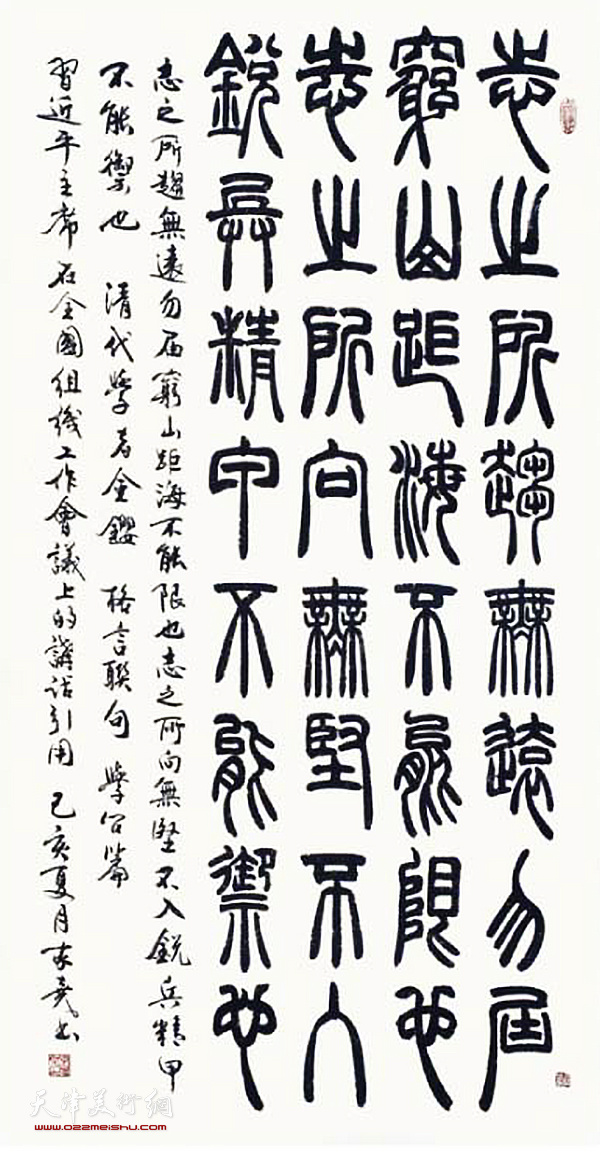 志之所趨無遠勿屆
窮山距海不能限也
志之所向無堅不入
銳兵精甲不能禦也
志之所趨無遠勿届窮山距海不能限也志之所向無堅不入銳兵精甲
不能禦也 清代學者金纓 格言聯句 學問篇
習近平主席在全國組織工作會議上的講話引用 己亥夏月
天津美術網
www.022meishu.com